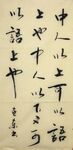 中人以上可以
語上也中人以下不可
以語上也